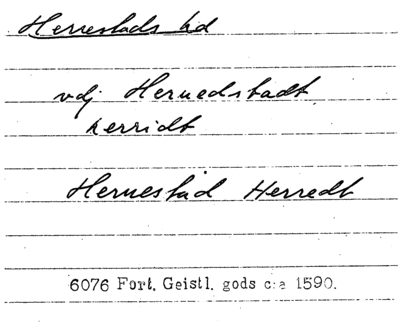 Herrestads hd
vdj Hernedstadt
herridt
Hernestad Herredt
6076 Fort. Geistl. gods c:a 1590.